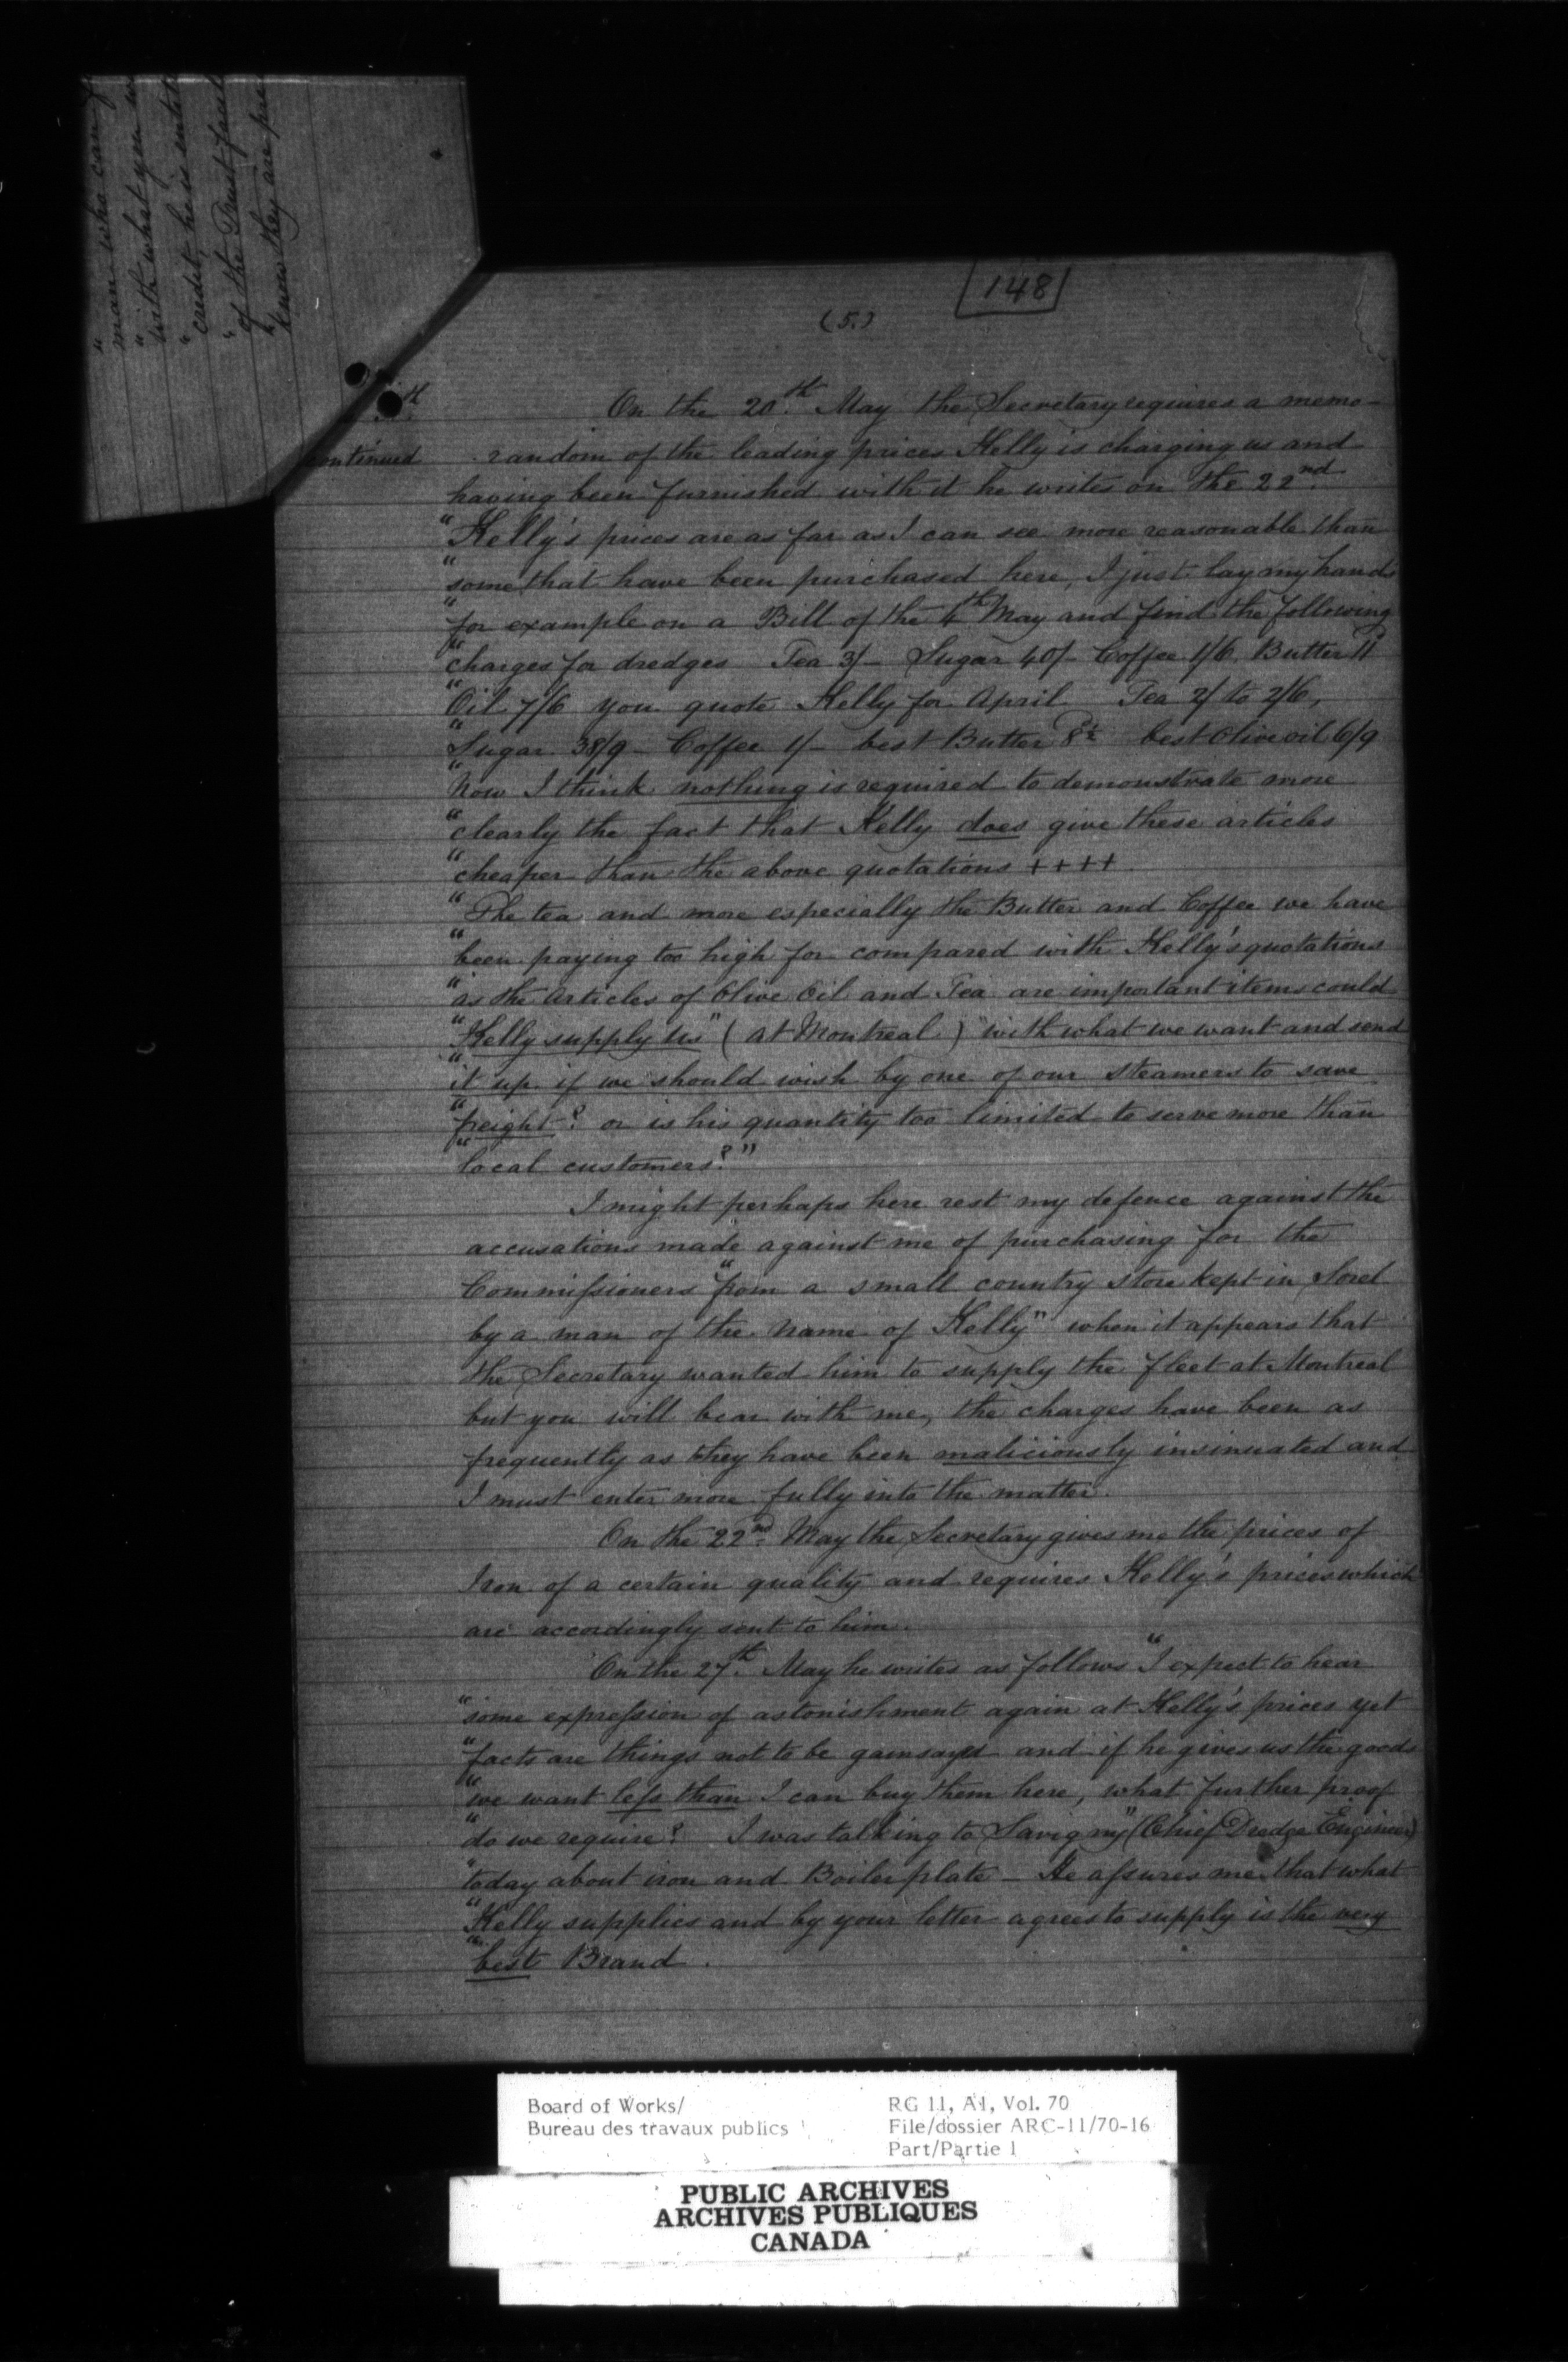 "man who can
"with what you
"credit, he is
"of the Trust
"know they are
148
(5.)
th
continued
On the 20th. May the Secretary requires a memo-
random of the leading prices Kelly is charging us and
having been furnished with it he writes on the 22nd.
"Kelly's prices are as far as I can see more reasonable than
"some that have been purchased here, I just lay my hands
"for example on a Bill of the 4th May and find the following
"charges for dredges Tea 3/- Sugar 40/- Coffee 1/6 Butter 11
"Oil 7/6 you quote Kelly for April Tea 2/ to 2/6,
"Sugar 38/9 - Coffee 1/- best Butter 8½ best Olive oil 6/9
"Now I think nothing is required to demonstrate more
"clearly the fact that Kelly does give these articles
"cheaper than the above quotations ++++
"The tea and more especially the Butter and Coffee we have
"been paying too high for compared with Kelly's quotations
"as the Articles of Olive Oil and Tea are important items could
"Kelly supply us" (at Montreal) "with what we want and send
"it up if we should wish by one of our steamers to save
"freight? or is his quantity too limited to serve more than
"local customers?"
I might perhaps here rest my defence against the
accusations made against me of purchasing for the
Commissioners "from a small country store kept in Sorel
by a man of the name of Kelly" when it appears that
the Secretary wanted him to supply the fleet at Montreal
but you will bear with me, the charges have been as
frequently as they have been maliciously insinuated and
I must enter more fully into the matter.
On the 22nd. May the Secretary gives me the prices of
Iron of a certain quality and requires Kelly's prices which
are accordingly sent to him.
On the 27th. May he writes as follows "I expect to hear
"some expression of astonishment again at Kelly's prices yet
"facts are things not to be gainsayed and if he gives us the goods
"we want less than I can buy them here, what further proof
"do we require? I was talking to Savigny" (Chief Dredge Engineer)
"today about iron and Boiler plate - He assures me that what
"Kelly supplies and by your letter agrees to supply is the very
"best Brand.
Board of Works/
Bureau des travaux publics
RG 11, A1, Vol. 70
File/dossier ARC-11/70-16
Part/Partie 1
PUBLIC ARCHIVES
ARCHIVES PUBLIQUES
CANADA